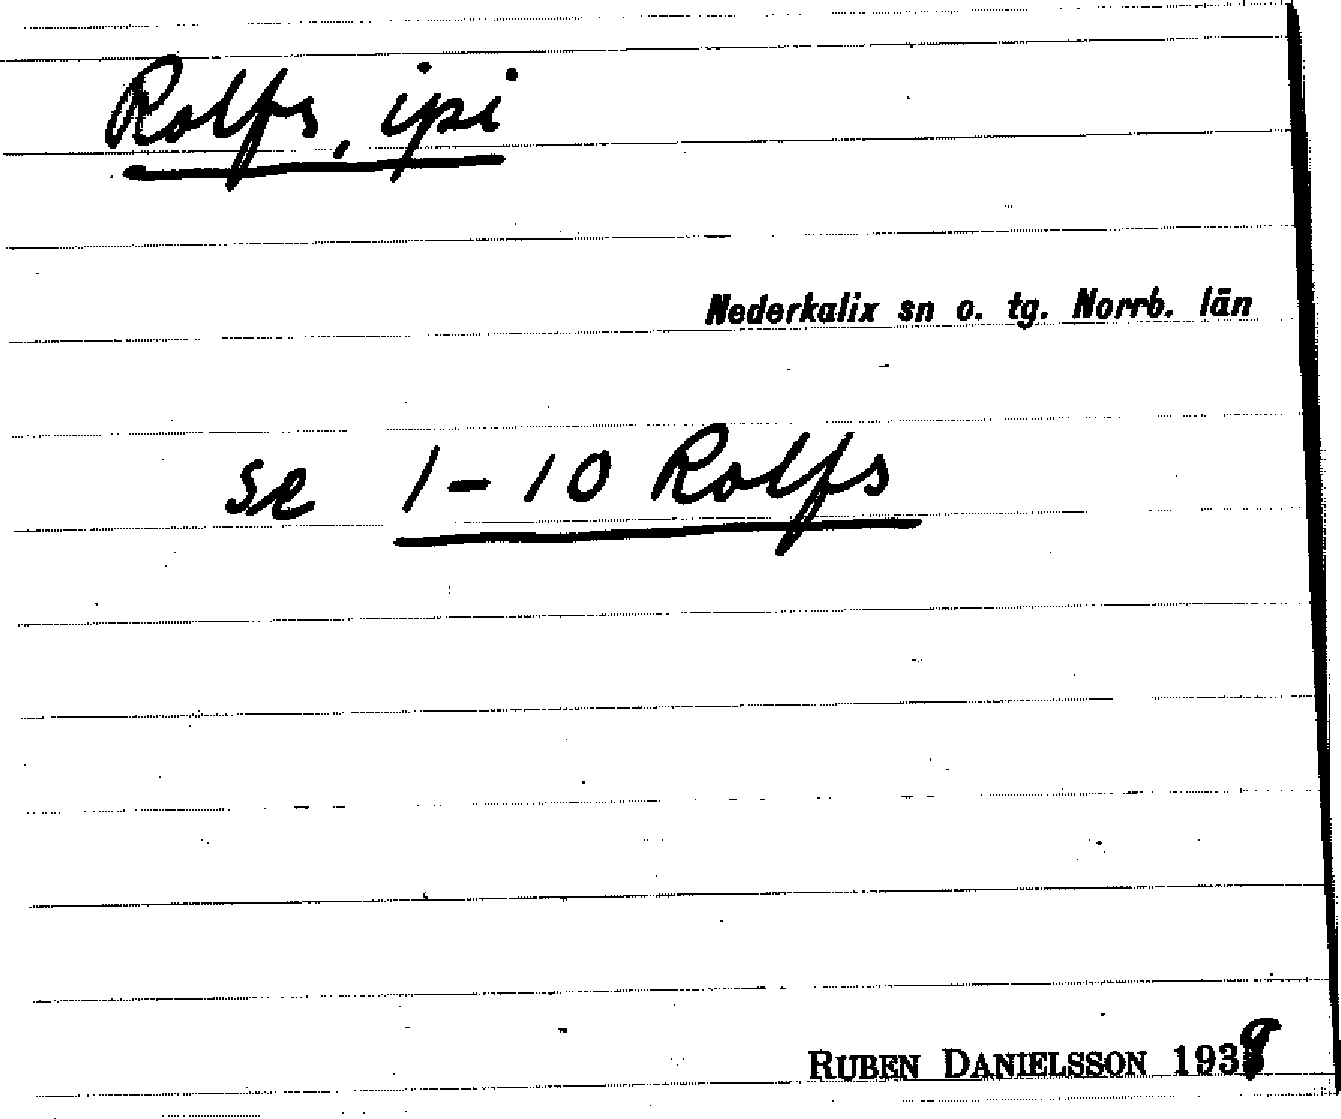 Rolfs, ipi
Nederkalix sn o. tg. Norrb. län
se 1-10 Rolfs
RUBEN DANIELSSON 1938